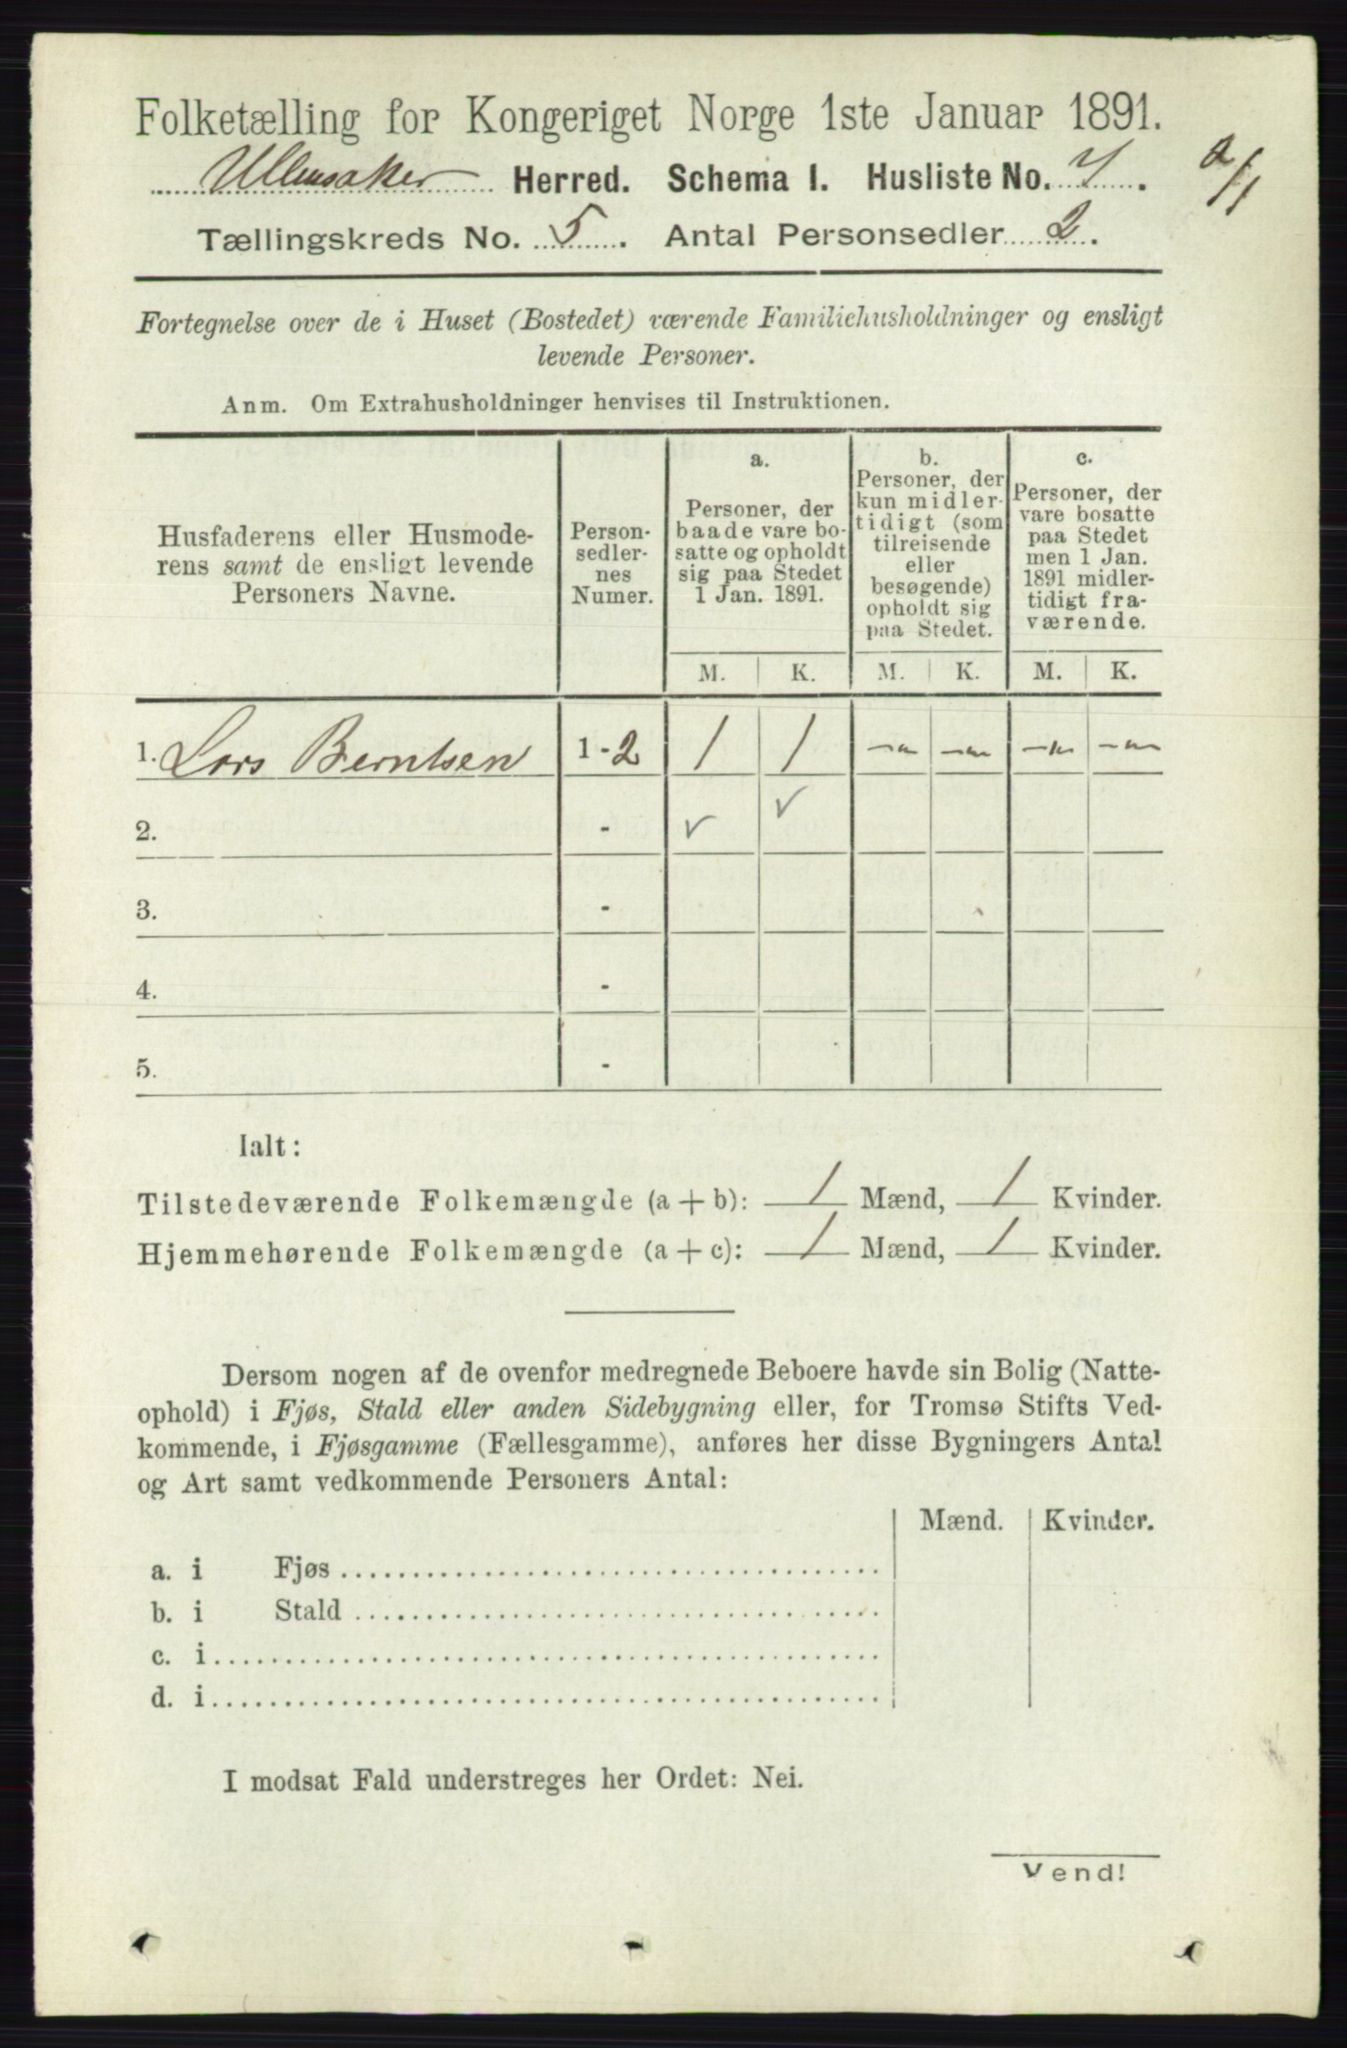 Folketælling for Kongeriget Norge 1ste Januar 1891.
Ullensaker Herred. Schema I. Husliste No. 7.
Tællingskreds No. 5. Antal Personsedler 2.
Fortegnelse over de i Huset (Bostedet) værende Familiehusholdninger og ensligt
levende Personer.
Anm. Om Extrahusholdninger henvises til Instruktionen.
Husfaderens eller Husmode-
rens samt de ensligt levende
Personers Navne.
Person-
sedler-
nes
Numer.
a.
Personer, der
baade vare bo-
satte og opholdt
sig paa Stedet
1 Jan. 1891.
b.
Personer, der
kun midler-
tidigt (som
tilreisende
eller
besøgende)
opholdt sig
paa Stedet.
c.
Personer, der
vare bosatte
paa Stedet
men 1 Jan.
1891 midler-
tidigt fra-
værende.
M. K. M. K. M. K.
1. Lars Berntsen 1-2 1 1
2. - ✓ ✓
3. -
4. -
5. -
Ialt:
Tilstedeværende Folkemængde (a+b): 1 Mænd, 1 Kvinder.
Hjemmehørende Folkemængde (a+c): 1 Mænd, 1 Kvinder.
Dersom nogen af de ovenfor medregnede Beboere havde sin Bolig (Natte-
ophold) i Fjøs, Stald eller anden Sidebygning eller, for Tromsø Stifts Ved-
kommende, i Fjøsgamme (Fællesgamme), anføres her disse Bygningers Antal
og Art samt vedkommende Personers Antal:
Mænd. Kvinder.
a. i Fjøs
b. i Stald
c. i
d. i
I modsat Fald understreges her Ordet: Nei.
Vend!